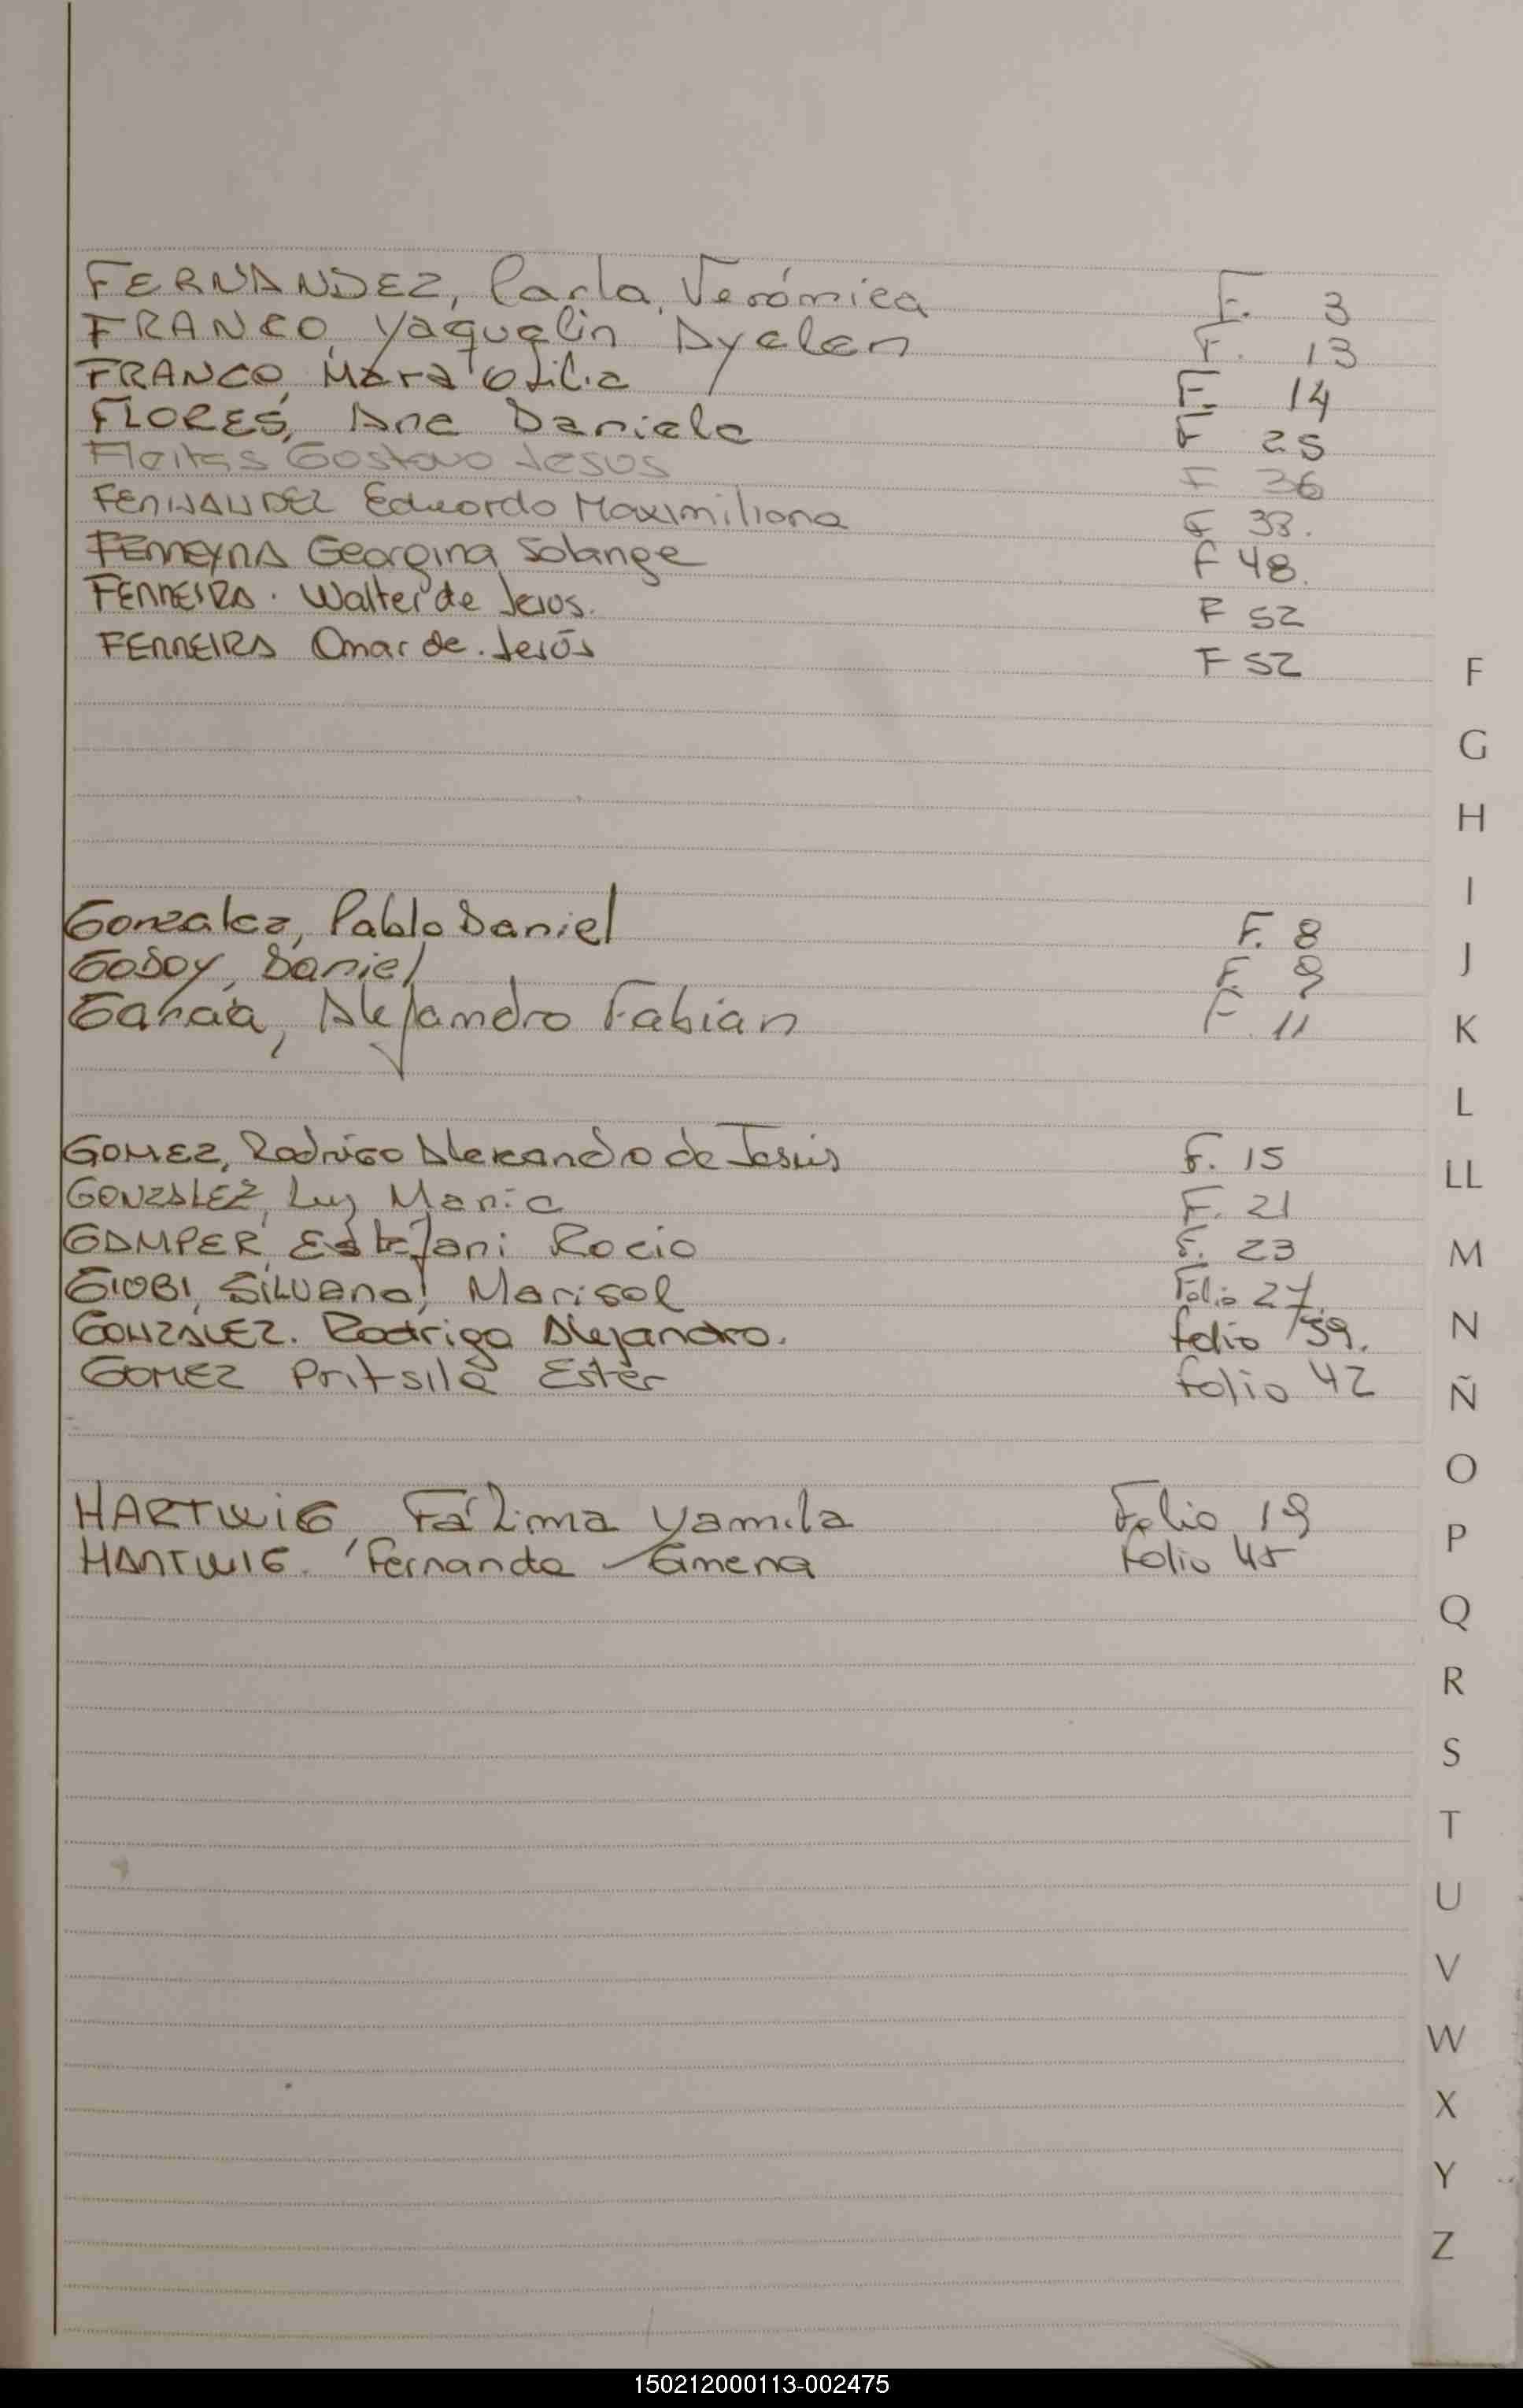 FERNANDEZ, Carla, Verónica F. 3
FRANCO, Yaquelin Ayelen F. 13
FRANCO, Mara Otilia F. 14
FLORES, Ana Daniela F 25
Fleitas Gostavo Jesus F 36
FERNANDEZ Eduardo Maximiliano F 33.
FERREYRA Georgina Solange F 48.
FERREIRA. Walter de Jesos. F 52
FERREIRA Omar de. Jesús F 52
Gonzalez, Pablo Daniel F. 8
GODOY, Daniel F. 9
García, Alejandro Fabian F. 11
GOMEZ, Rodrigo Alexandro de Jesús F. 15
GONZALEZ, Luz Maria F. 21
GAMPER, Estefani Rocio F. 23
GIOBI, SILVANA, Marisol Folio 27
GONZALEZ. Rodrigo Alejandro. folio 39.
GOMEZ Pritsila Ester folio 42
HARTWIG, Fátima Yamila Folio 19
HARTWIG. Fernanda Gimena folio 45
F
G
H
I
J
K
L
LL
M
N
Ñ
O
P
Q
R
S
T
U
V
W
X
Y
Z
150212000113-002475